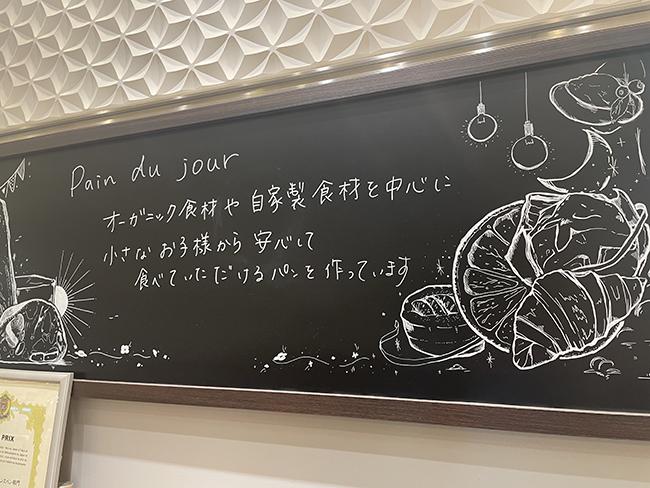 Pain du jour
オーガニック食材や自家製食材を中心に
小さなお子様から安心して
食べていただけるパンを作っています
PRIX